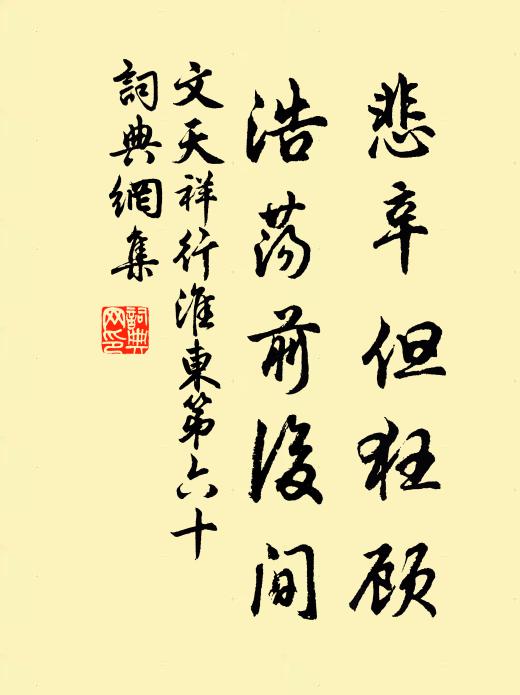 悲辛但狂顾
浩荡前後间
文天祥行淮東第六十
詞典網集
詞典网印